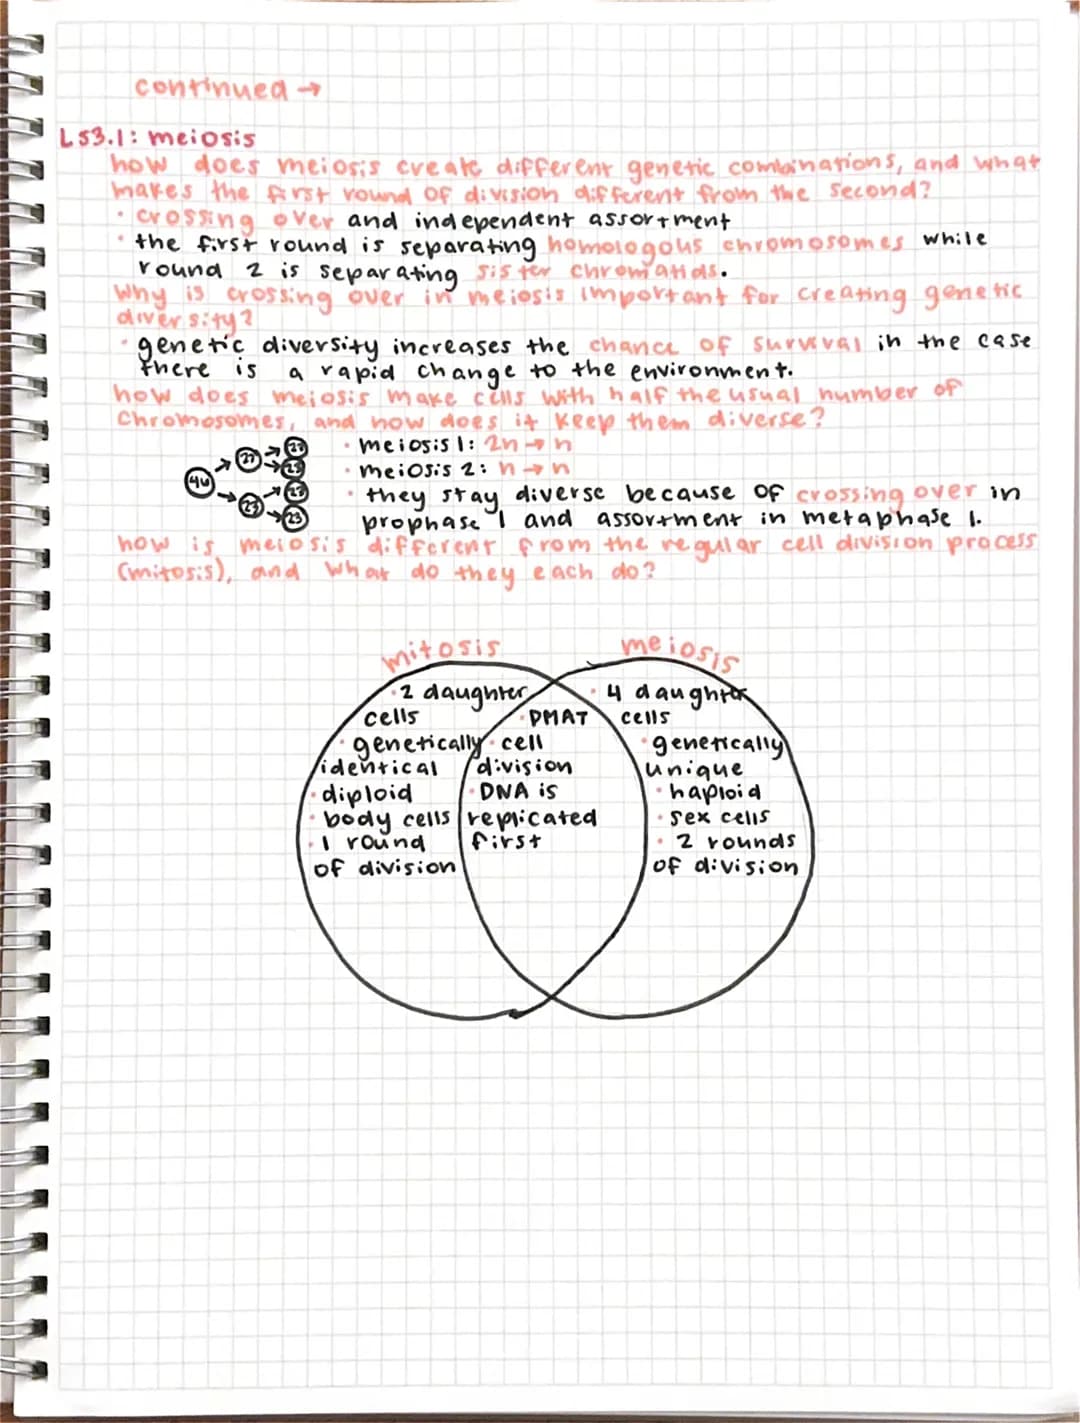 continued →
LS3.1: meiosis
how does meiosis create different genetic combinations, and what
makes the first round of division different from the second?
• crossing over and independent assortment
• the first round is separating homologous chromosomes while
round 2 is separating sister chromatids.
Why is crossing over in meiosis important for creating genetic
diversity?
• genetic diversity increases the chance of survival in the case
there is a rapid change to the environment.
how does meiosis make cells with half the usual number of
Chromosomes, and how does it keep them diverse?
• meiosis 1: 2n → n
• meiosis 2: n → n
• they stay diverse because of crossing over in
prophase 1 and assortment in metaphase 1.
23
23
23
23
23
how is meiosis different from the regular cell division process
(mitosis), and what do they each do?
mitosis
• 2 daughter
cells
• genetically
identical
• diploid
• body cells
• 1 round
of division
• PMAT
• cell
division
• DNA is
replicated
first
meiosis
• 4 daughter
cells
• genetically
unique
• haploid
• sex cells
• 2 rounds
of division